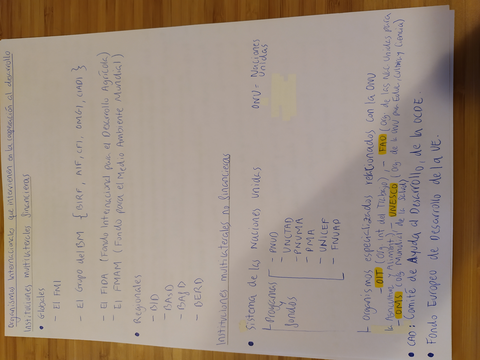 Organismos internacionales que intervienen en la cooperación al desarrollo
Instituciones multilaterales financieras
• Globales
- El FMI
- El Grupo del BM { BIRF, AIF, CFI, OMGI, CIADI }
- El FIDA (Fondo Internacional para el Desarrollo Agrícola)
- El FMAM (Fondo para el Medio Ambiente Mundial)
• Regionales
- BID
- BAfD
- BAsD
- BERD
Instituciones multilaterales no financieras
• Sistema de las Naciones Unidas ONU = Naciones Unidas
↳ Programas y fondos
- PNUD
- UNCTAD
- PNUMA
- PMA
- UNICEF
- FNUAP
↳ Organismos especializados relacionados con la ONU
- OIT (Org Int del Trabajo) - FAO (Org de las Nac Unidas para
la
- UNESCO (Org de la ONU para Educ, Cultura y Ciencia)
- OMS (Org Mundial de la Salud)
• CAD: Comité de Ayuda al Desarrollo, de la OCDE
• Fondo Europeo de Desarrollo de la UE.